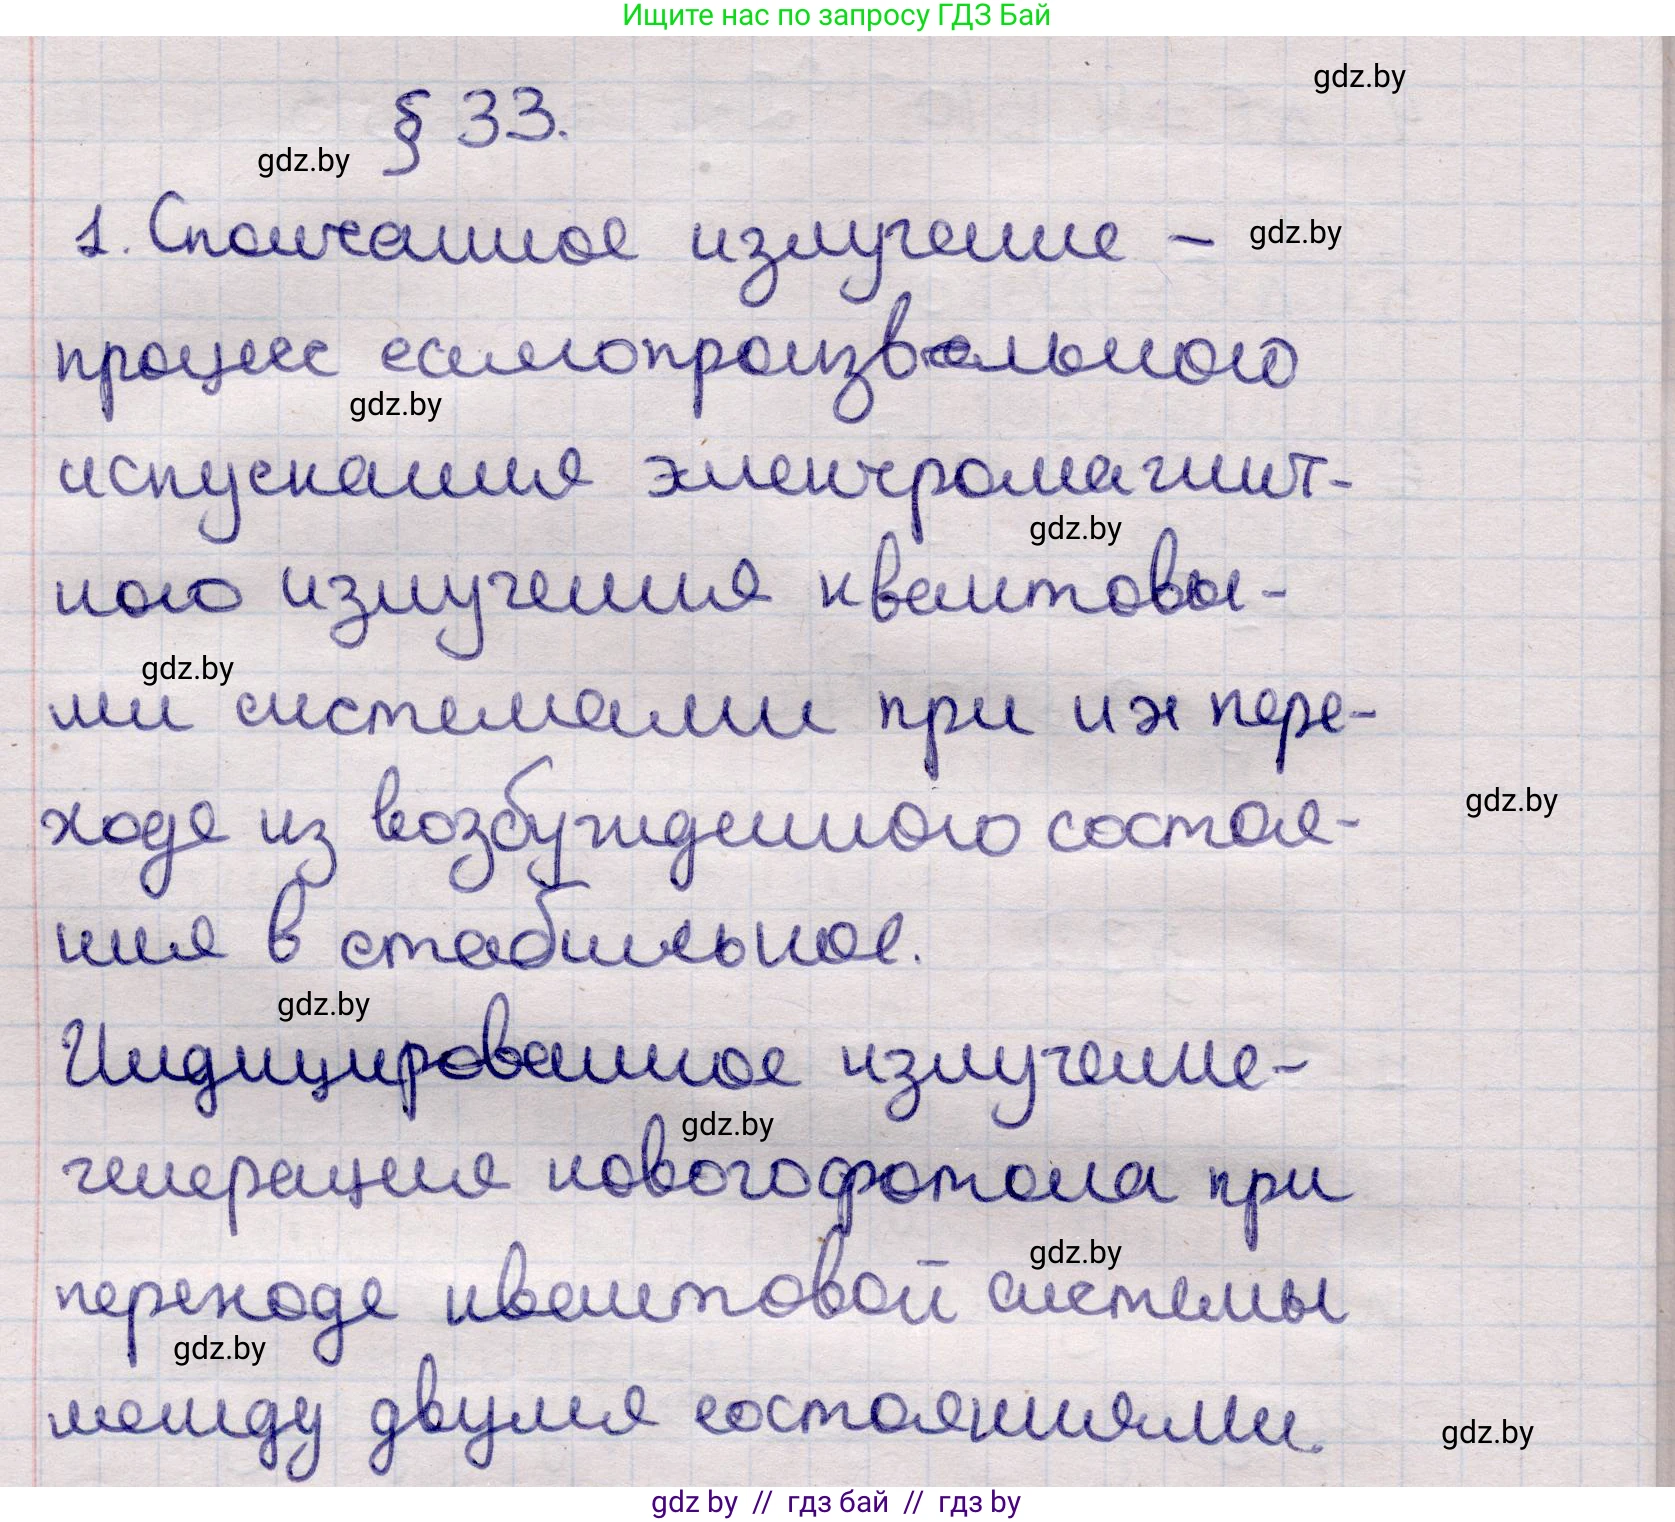 Ищите нас по запросу ГДЗ Бай
gdz.by
§ 33.
gdz.by
1. Спонтанное излучение –
gdz.by
процесс самопроизвольного
gdz.by
испускания электромагнит-
gdz.by
ного излучения квантовы-
gdz.by
ми системами при их пере-
gdz.by
ходе из возбужденного состоя-
ния в стабильное.
gdz.by
Индицированное излучение-
gdz.by
генерация нового фотона при
gdz.by
переходе квантовой системы
gdz.by
между двумя состояниями.
gdz.by
gdz by // гдз бай // гдз by